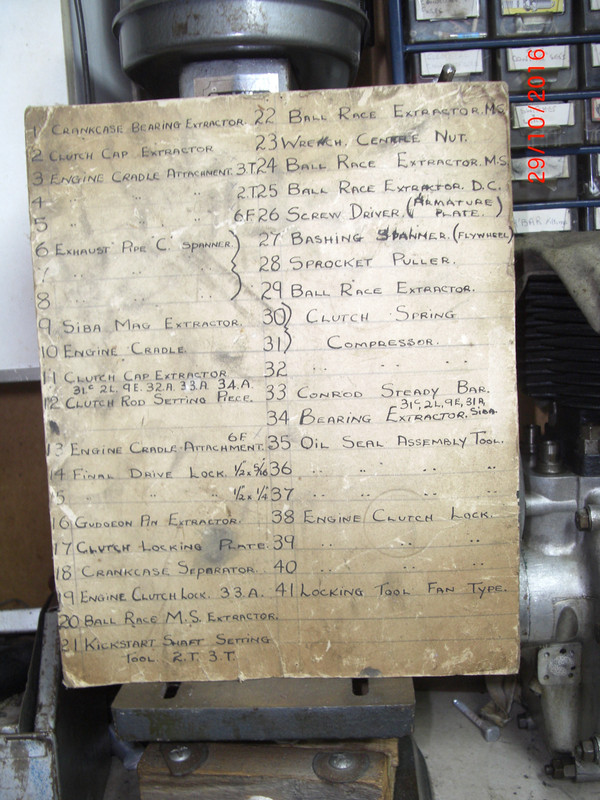 1 CRANKCASE BEARING EXTRACTOR.
2 CLUTCH CAP EXTRACTOR
3 ENGINE CRADLE ATTACHMENT. 3.T
4 " " " 2.T
5 " " " 6F
6 EXHAUST PIPE C. SPANNER.
7 " "
8 " "
9 SIBA MAG EXTRACTOR.
10 ENGINE CRADLE.
11 CLUTCH CAP EXTRACTOR
31C, 2L, 9E. 32.A. 33.A. 34.A.
12 CLUTCH ROD SETTING PIECE.
6F
13 ENGINE CRADLE ATTACHMENT.
14 FINAL DRIVE LOCK. 1/2 x 5/16
15 " " " 1/2 x 1/4
16 GUDGEON PIN EXTRACTOR.
17 CLUTCH LOCKING PLATE.
18 CRANKCASE SEPARATOR.
19 ENGINE CLUTCH LOCK. 33.A.
20 BALL RACE M.S. EXTRACTOR.
21 KICKSTART SHAFT SETTING
TOOL 2.T. 3.T.
22 BALL RACE EXTRACTOR. M.C.
23 WRENCH. CENTRE NUT.
24 BALL RACE EXTRACTOR. M.S.
25 BALL RACE EXTRACTOR. D.C.
26 SCREW DRIVER. (ARMATURE
PLATE.)
27 BASHING SPANNER. (FLYWHEEL)
28 SPROCKET PULLER.
29 BALL RACE EXTRACTOR.
30 CLUTCH SPRING
31 COMPRESSOR.
32 " " "
33 CONROD STEADY BAR.
31C, 2L, 9E, 31A,
34 BEARING EXTRACTOR. SIBA.
35 OIL SEAL ASSEMBLY TOOL.
36 " " " "
37 " " " "
38 ENGINE CLUTCH LOCK.
39 " " "
40 " " "
41 LOCKING TOOL FAN TYPE.
29/10/2016